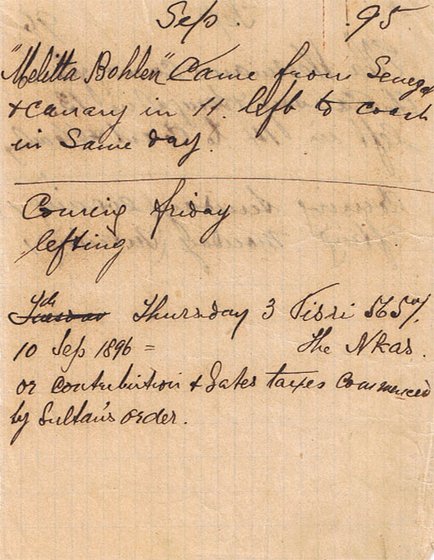 Sep. 95
"Melitta Bohlen" Came from Senegal
& Canary in 11. left to coast
in Same day.
Coming friday
lefting
Thursday 3 Tisri 565
10 Sep 1896 = The Nkas.
or contribution & Gates taxes Commenced
by Sultan's order.